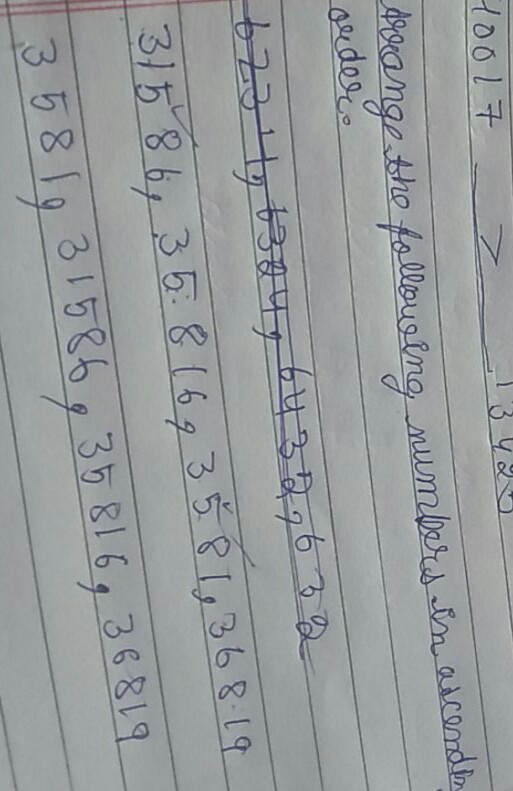 10017 > 13425
Arrange the following numbers in ascending
order.
31586, 35816, 3581, 36819
3581, 31586, 35816, 36819